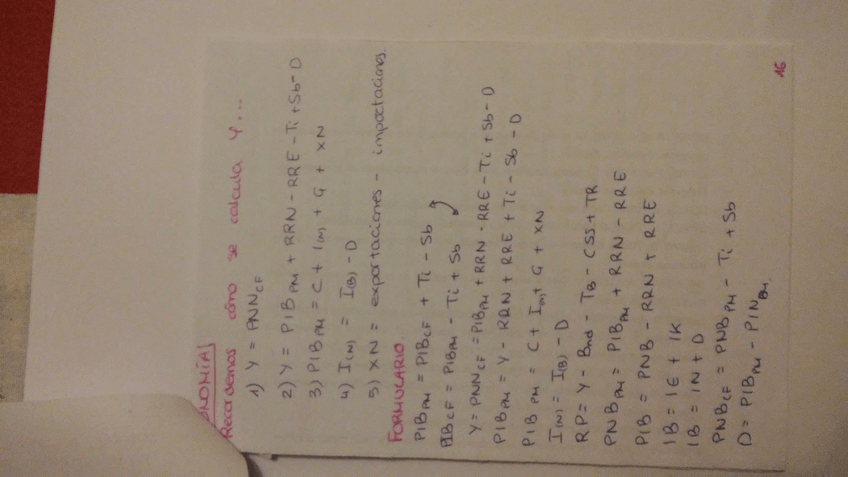 ONOMÍA
Recordemos cómo se calcula Y...
1) Y = PNN CF
2) Y = PIB PM + RRN - RRE - Ti + Sb - D
3) PIB PM = C + I(N) + G + XN
4) I(N) = I(B) - D
5) XN = exportaciones - importaciones.
FORMULARIO
PIB PM = PIB CF + Ti - Sb
PIB CF = PIB PM - Ti + Sb
Y = PNN CF = PIB PM + RRN - RRE - Ti + Sb - D
PIB PM = Y - RRN + RRE + Ti - Sb - D
PIB PM = C + I(N) + G + XN
I(N) = I(B) - D
RP = Y - Bnd - TB - CSS + TR
PNB PM = PIB PM + RRN - RRE
PIB = PNB - RRN + RRE
IB = IE + IK
IB = IN + D
PNB CF = PNB PM - Ti + Sb
D = PIB PM - PIN PM.
16